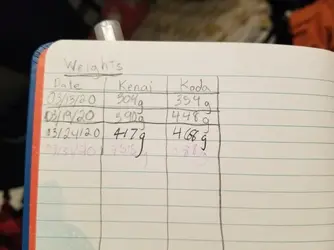 Weights
Date Kenai Koda
03/13/20 304g 354g
03/19/20 390g 448g
03/24/20 417g 468g